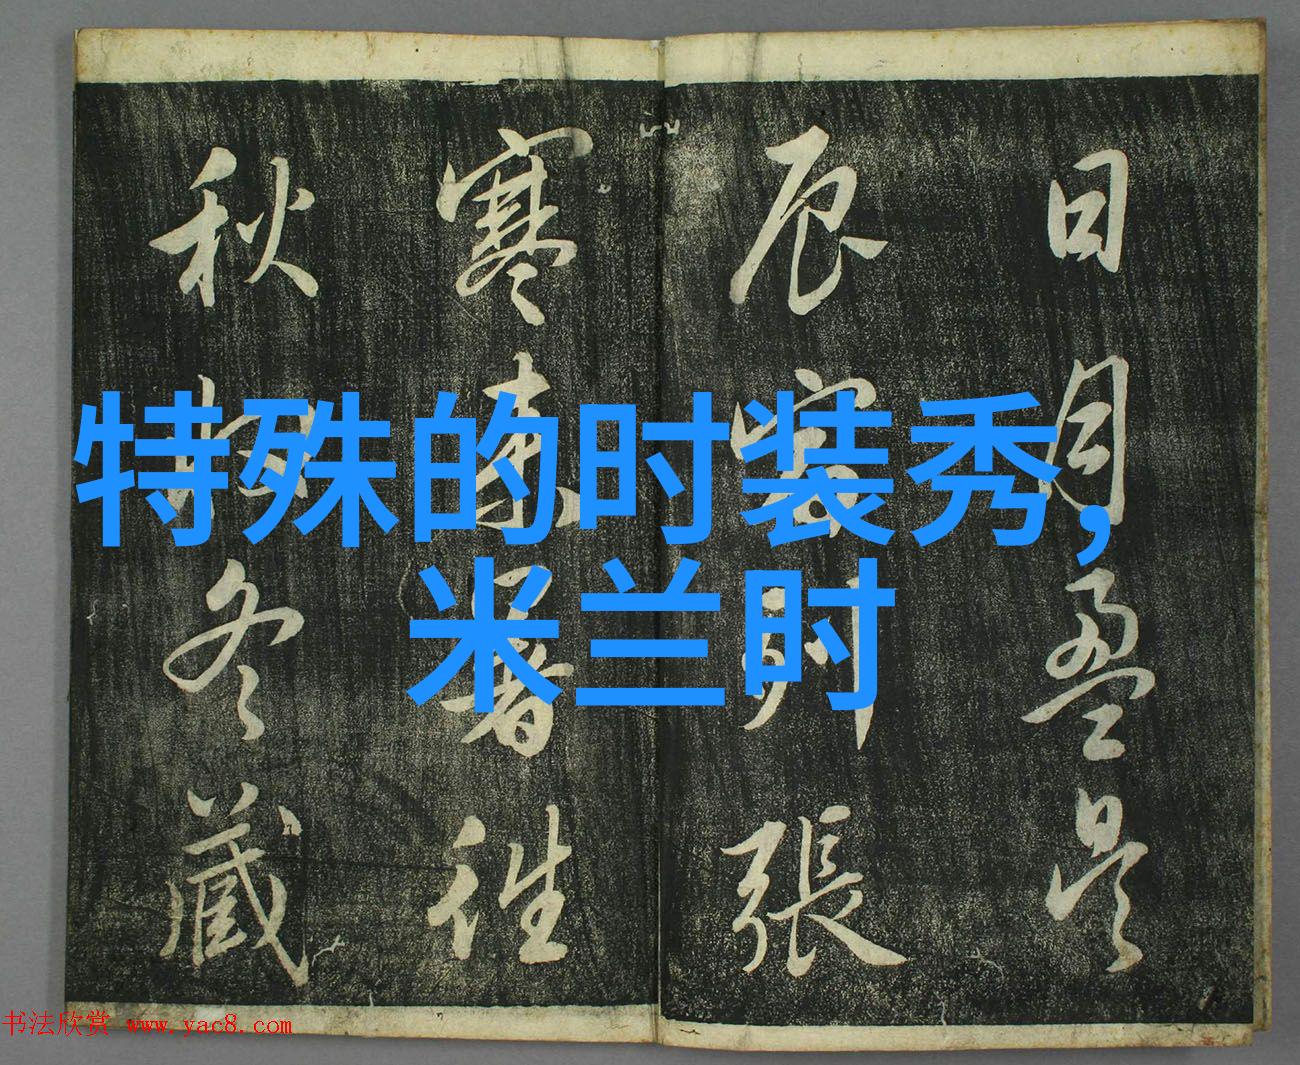 特殊的时装秀,
米兰时
日月盈昃
辰宿列張
寒來暑往
秋收冬藏
书法欣赏 www.yac8.com